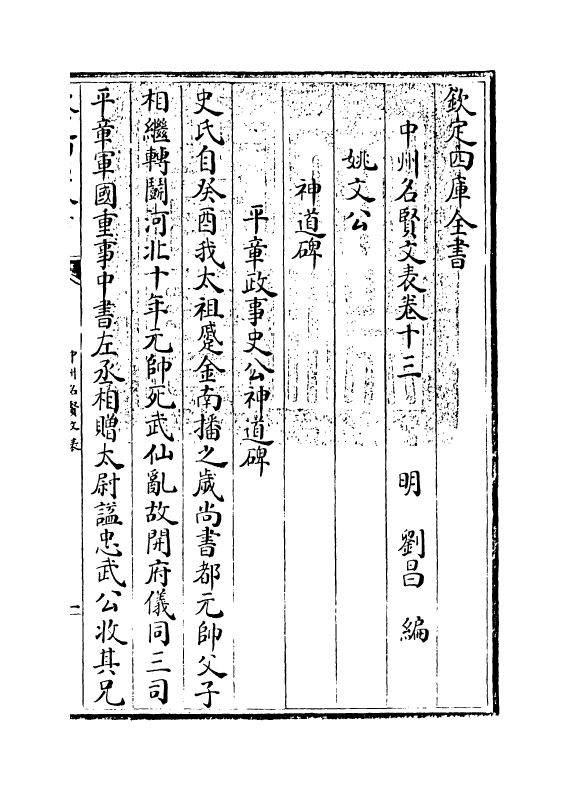 欽定四庫全書
中州名賢文表卷十三　明　劉昌　編
姚文公
神道碑
平章政事史公神道碑
史氏自癸酉我太祖蹙金南播之歲尚書都元帥父子
相繼轉鬬河北十年元帥死武仙亂故開府儀同三司
平章軍國重事中書左丞相贈太尉謚忠武公收其兄
中州名賢文表
一